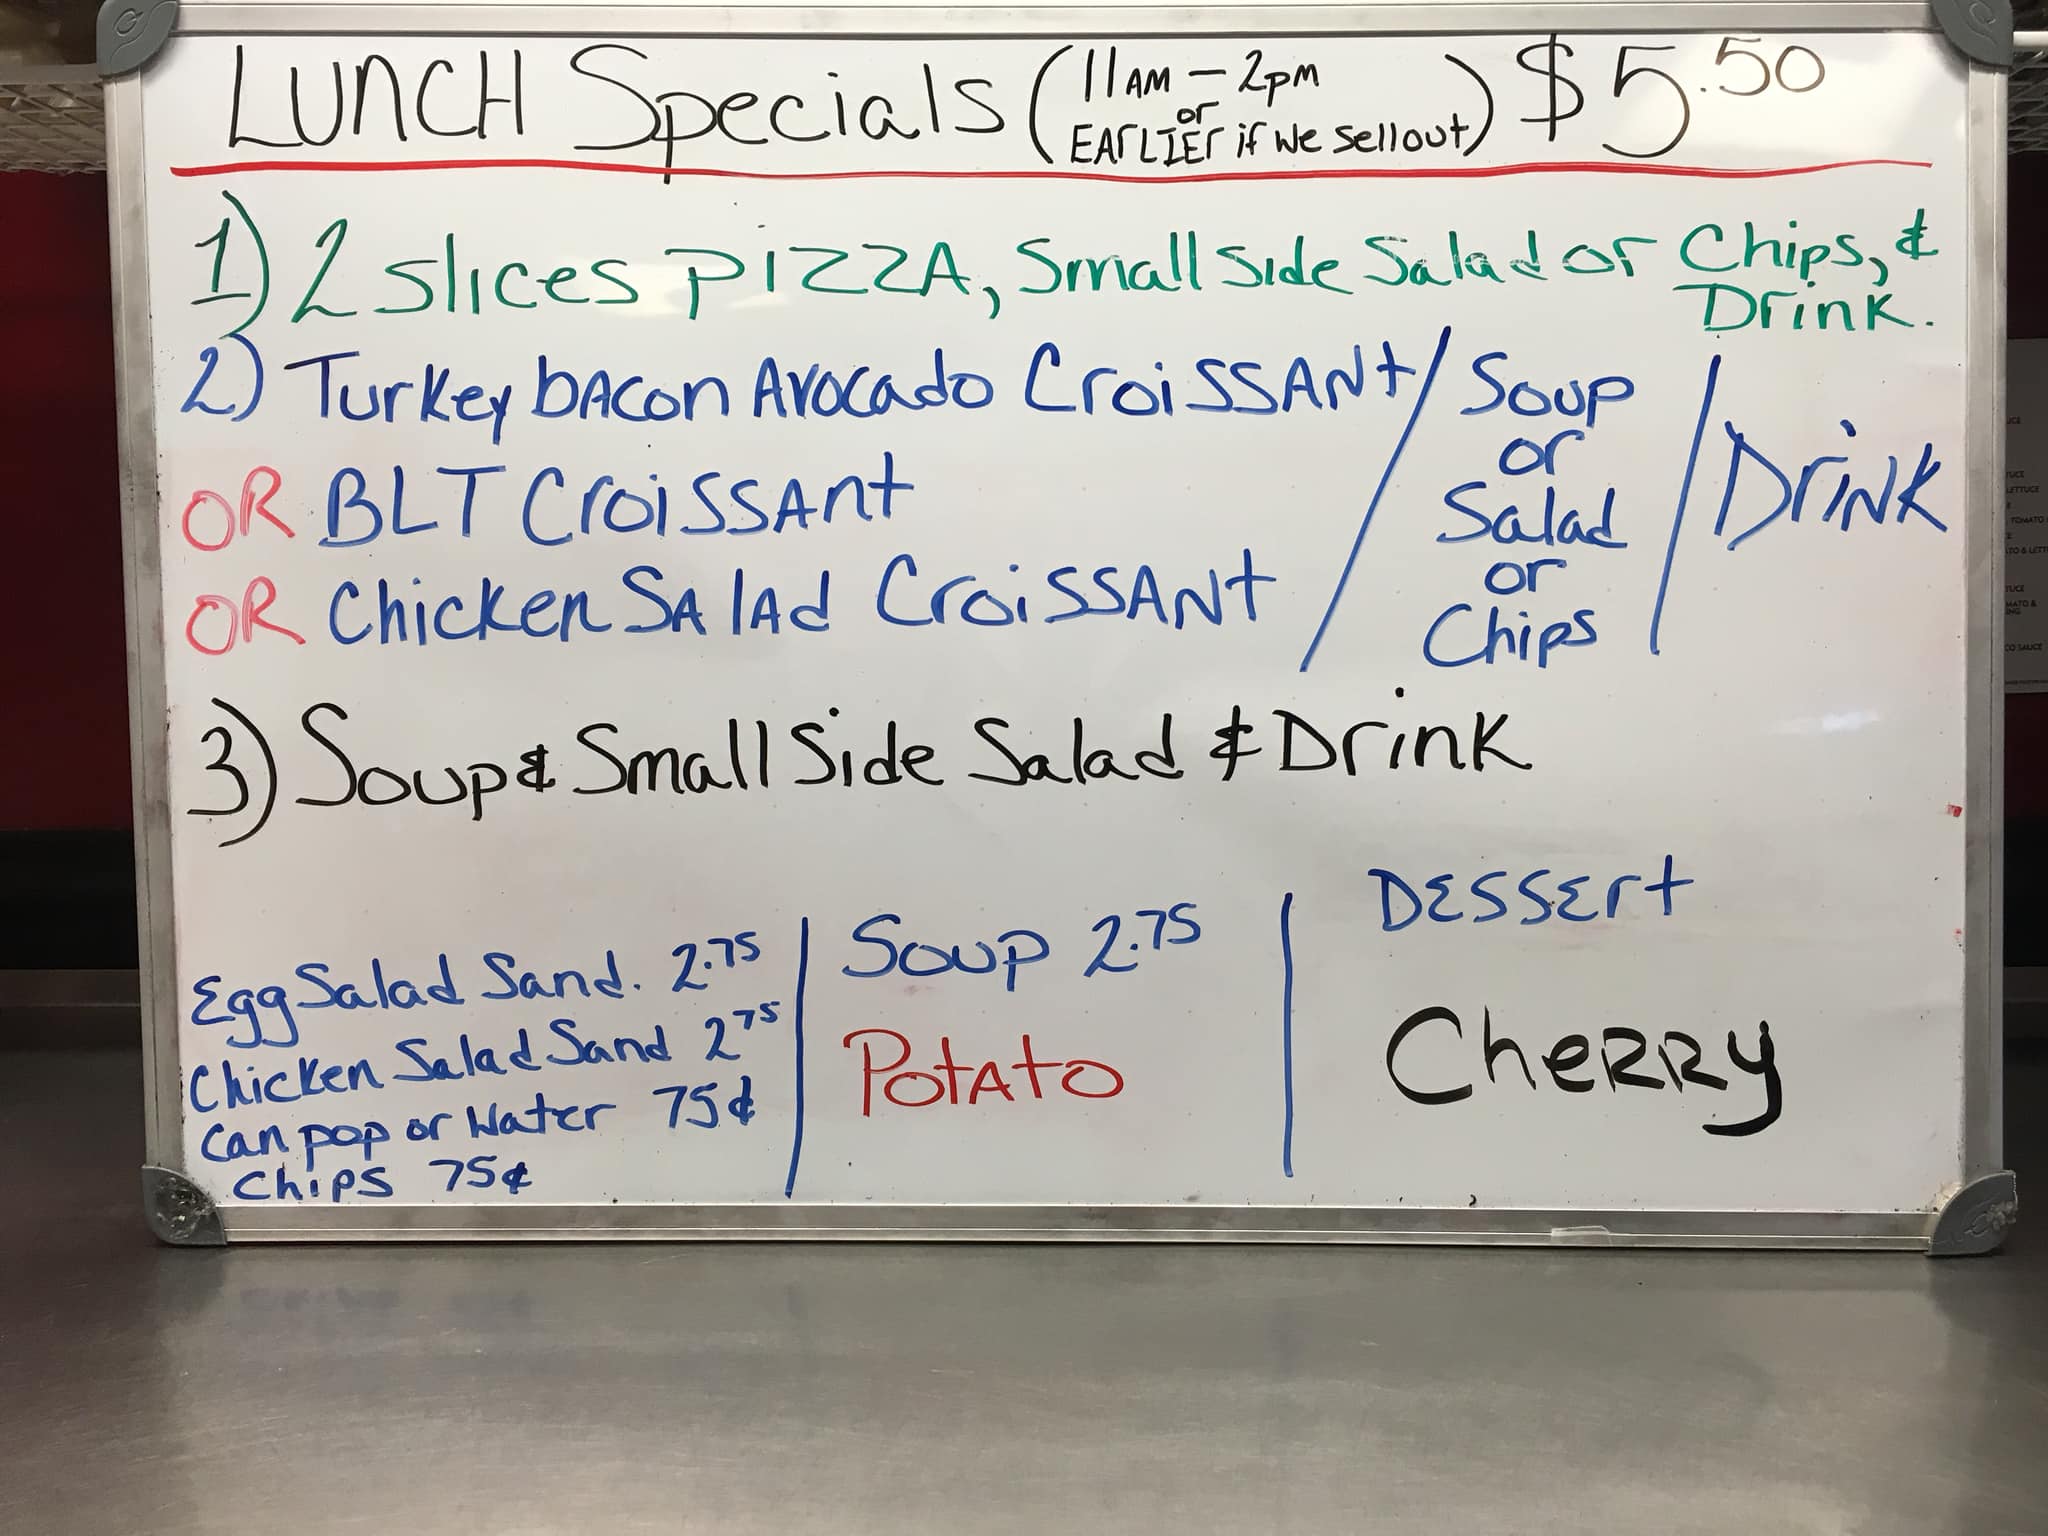 LUNCH Specials (11AM - 2pm or EARLIEr if we sellout) $5.50
1) 2 slices PIZZA, Small Side Salad or Chips, &
Drink.
2) Turkey bacon Avocado Croissant / Soup or Salad or Chips / Drink
OR BLT Croissant
OR Chicken Salad Croissant
3) Soup & Small Side Salad & Drink
Egg Salad Sand. 2.75
Chicken Salad Sand 2 75
Can pop or Water 75¢
Chips 75¢
Soup 2.75
Potato
Dessert
Cherry
LETTUCE
CO SAUCE